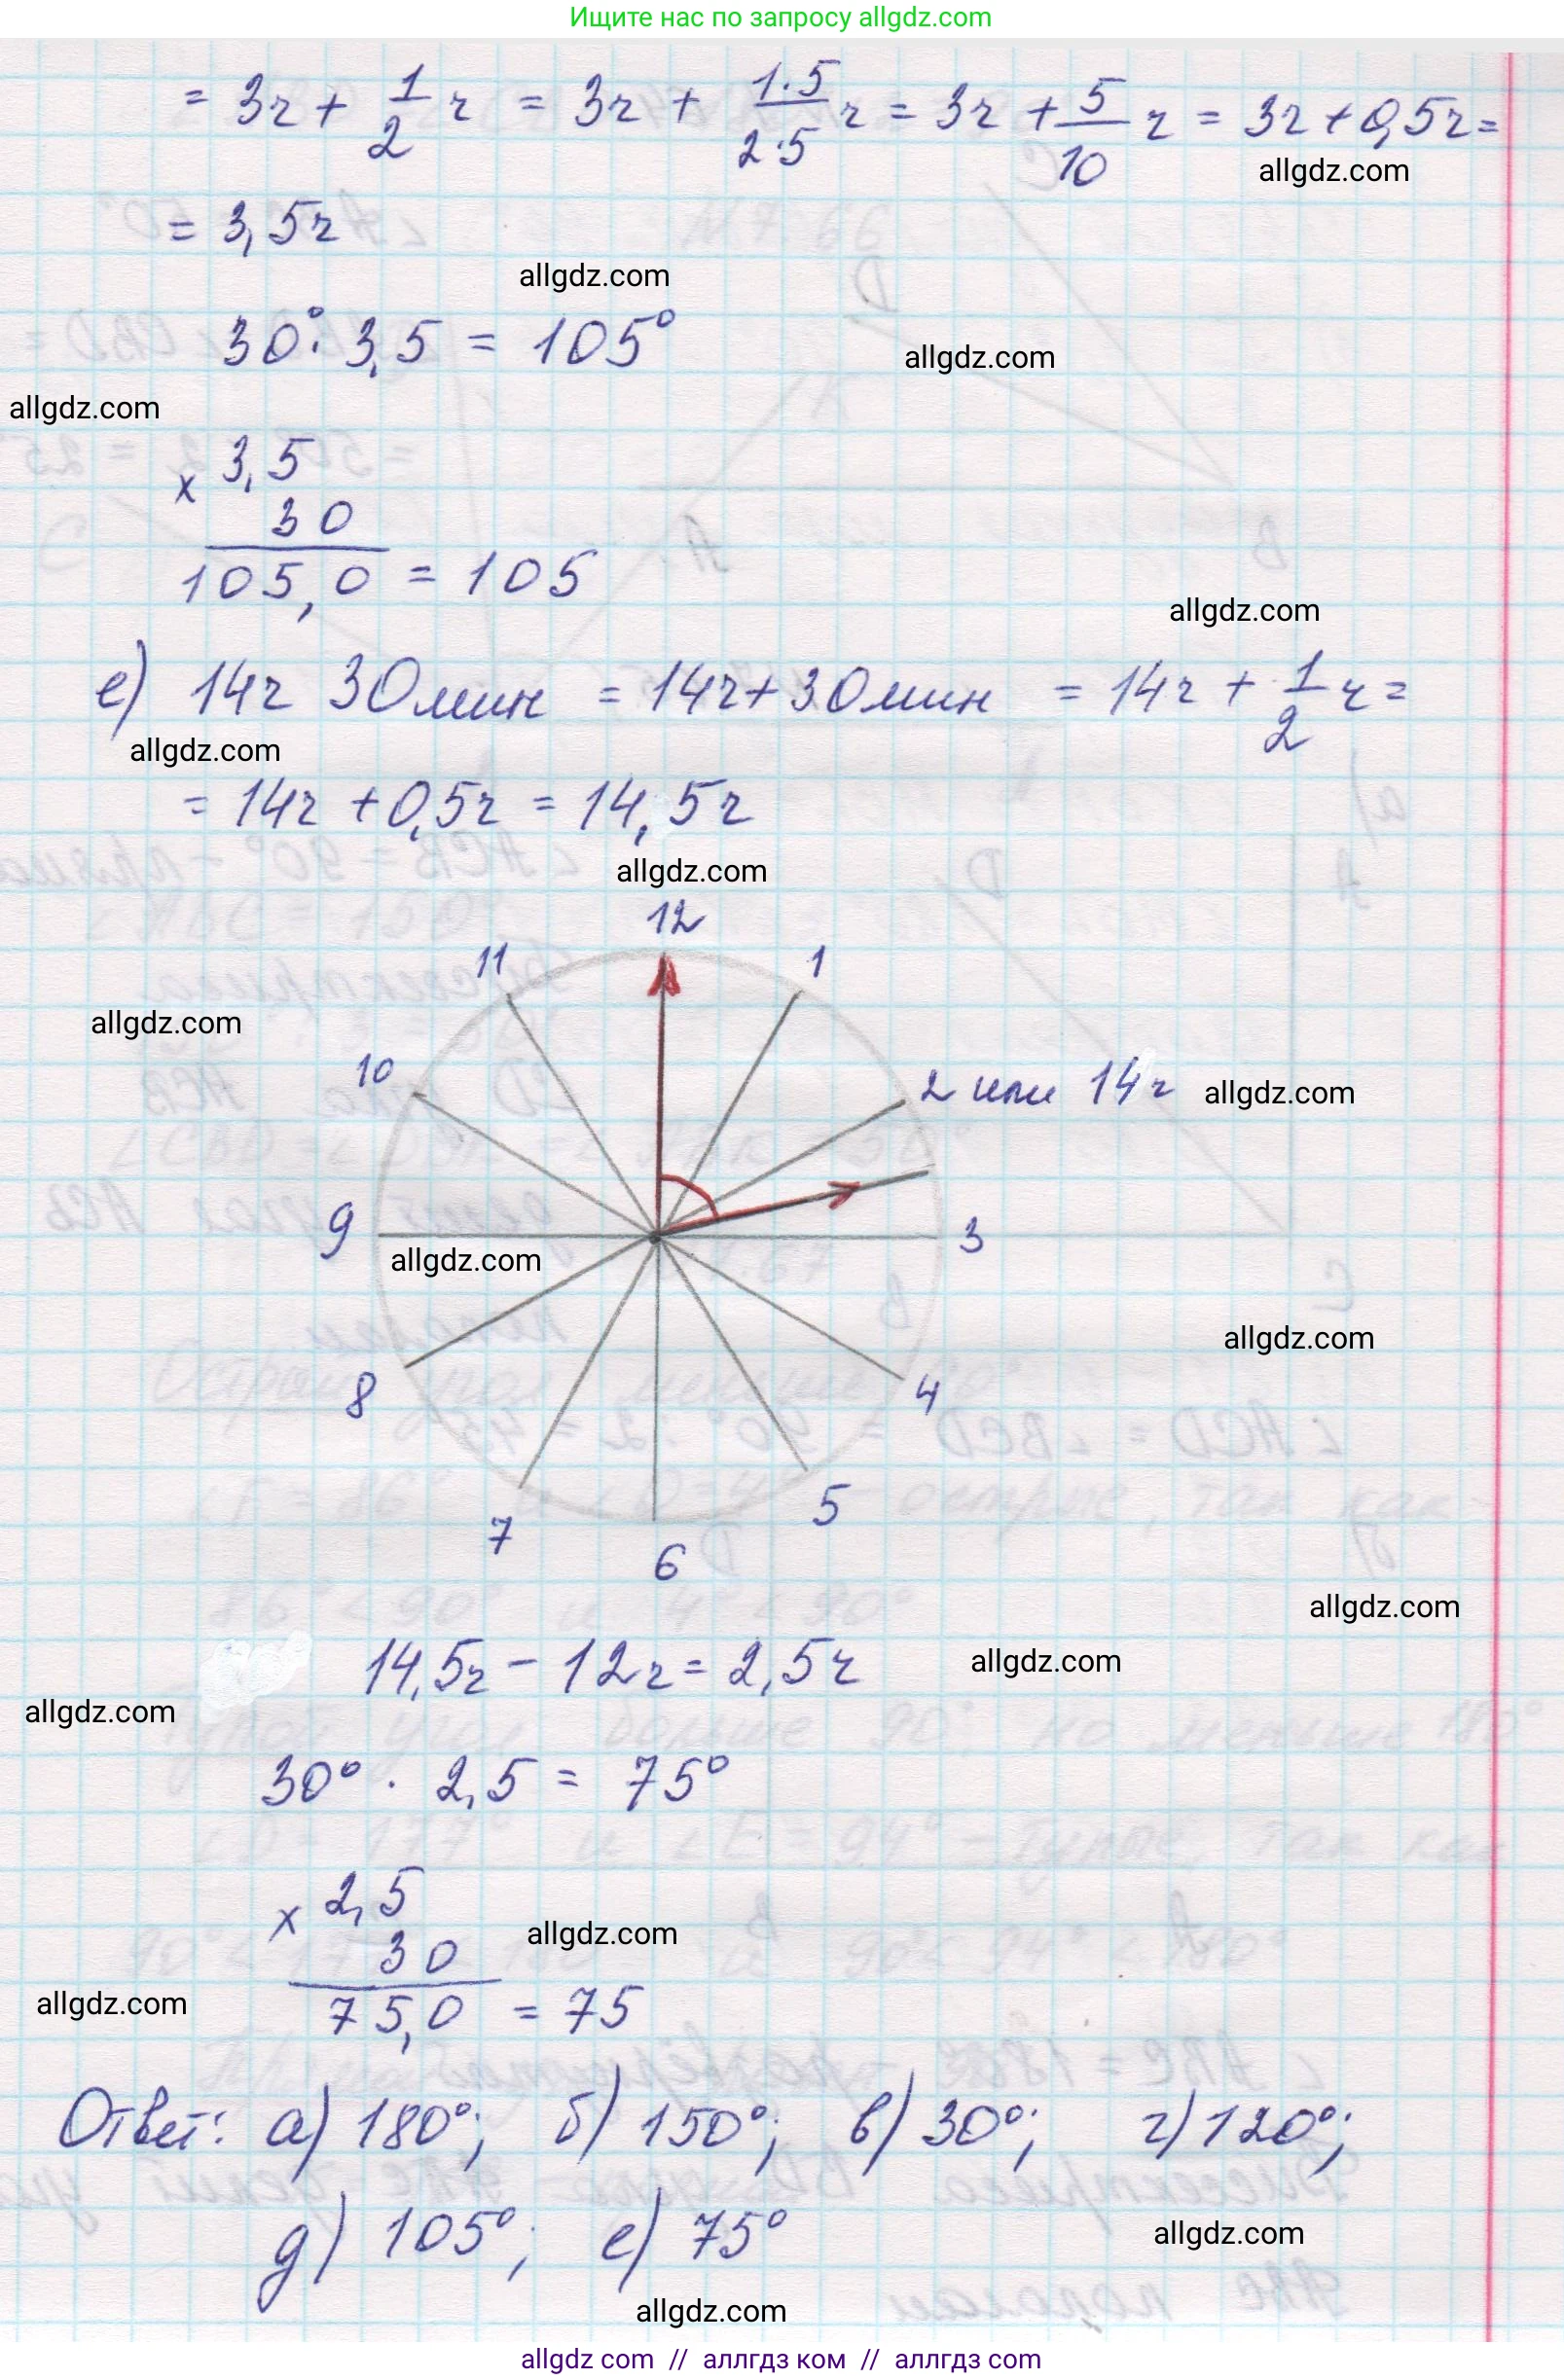 Ищите нас по запросу allgdz.com
= 3ч + 1/2 ч = 3ч + 1·5/2·5 ч = 3ч + 5/10 ч = 3ч + 0,5ч =
allgdz.com
= 3,5ч
allgdz.com
30° · 3,5 = 105°
allgdz.com
allgdz.com
× 3,5
30
105,0 = 105
allgdz.com
е) 14ч 30мин = 14ч + 30мин = 14ч + 1/2 ч =
allgdz.com
= 14ч + 0,5ч = 14,5ч
allgdz.com
12
11 1
allgdz.com
10 2 или 14ч allgdz.com
9 3
allgdz.com
allgdz.com
8 4
7 5
6
allgdz.com
14,5ч – 12ч = 2,5ч allgdz.com
allgdz.com
30° · 2,5 = 75°
× 2,5
allgdz.com
30
allgdz.com
75,0 = 75
Ответ: а) 180°; б) 150°; в) 30°; г) 120°;
д) 105°; е) 75°
allgdz.com
allgdz.com
allgdz com // аллгдз ком // аллгдз com